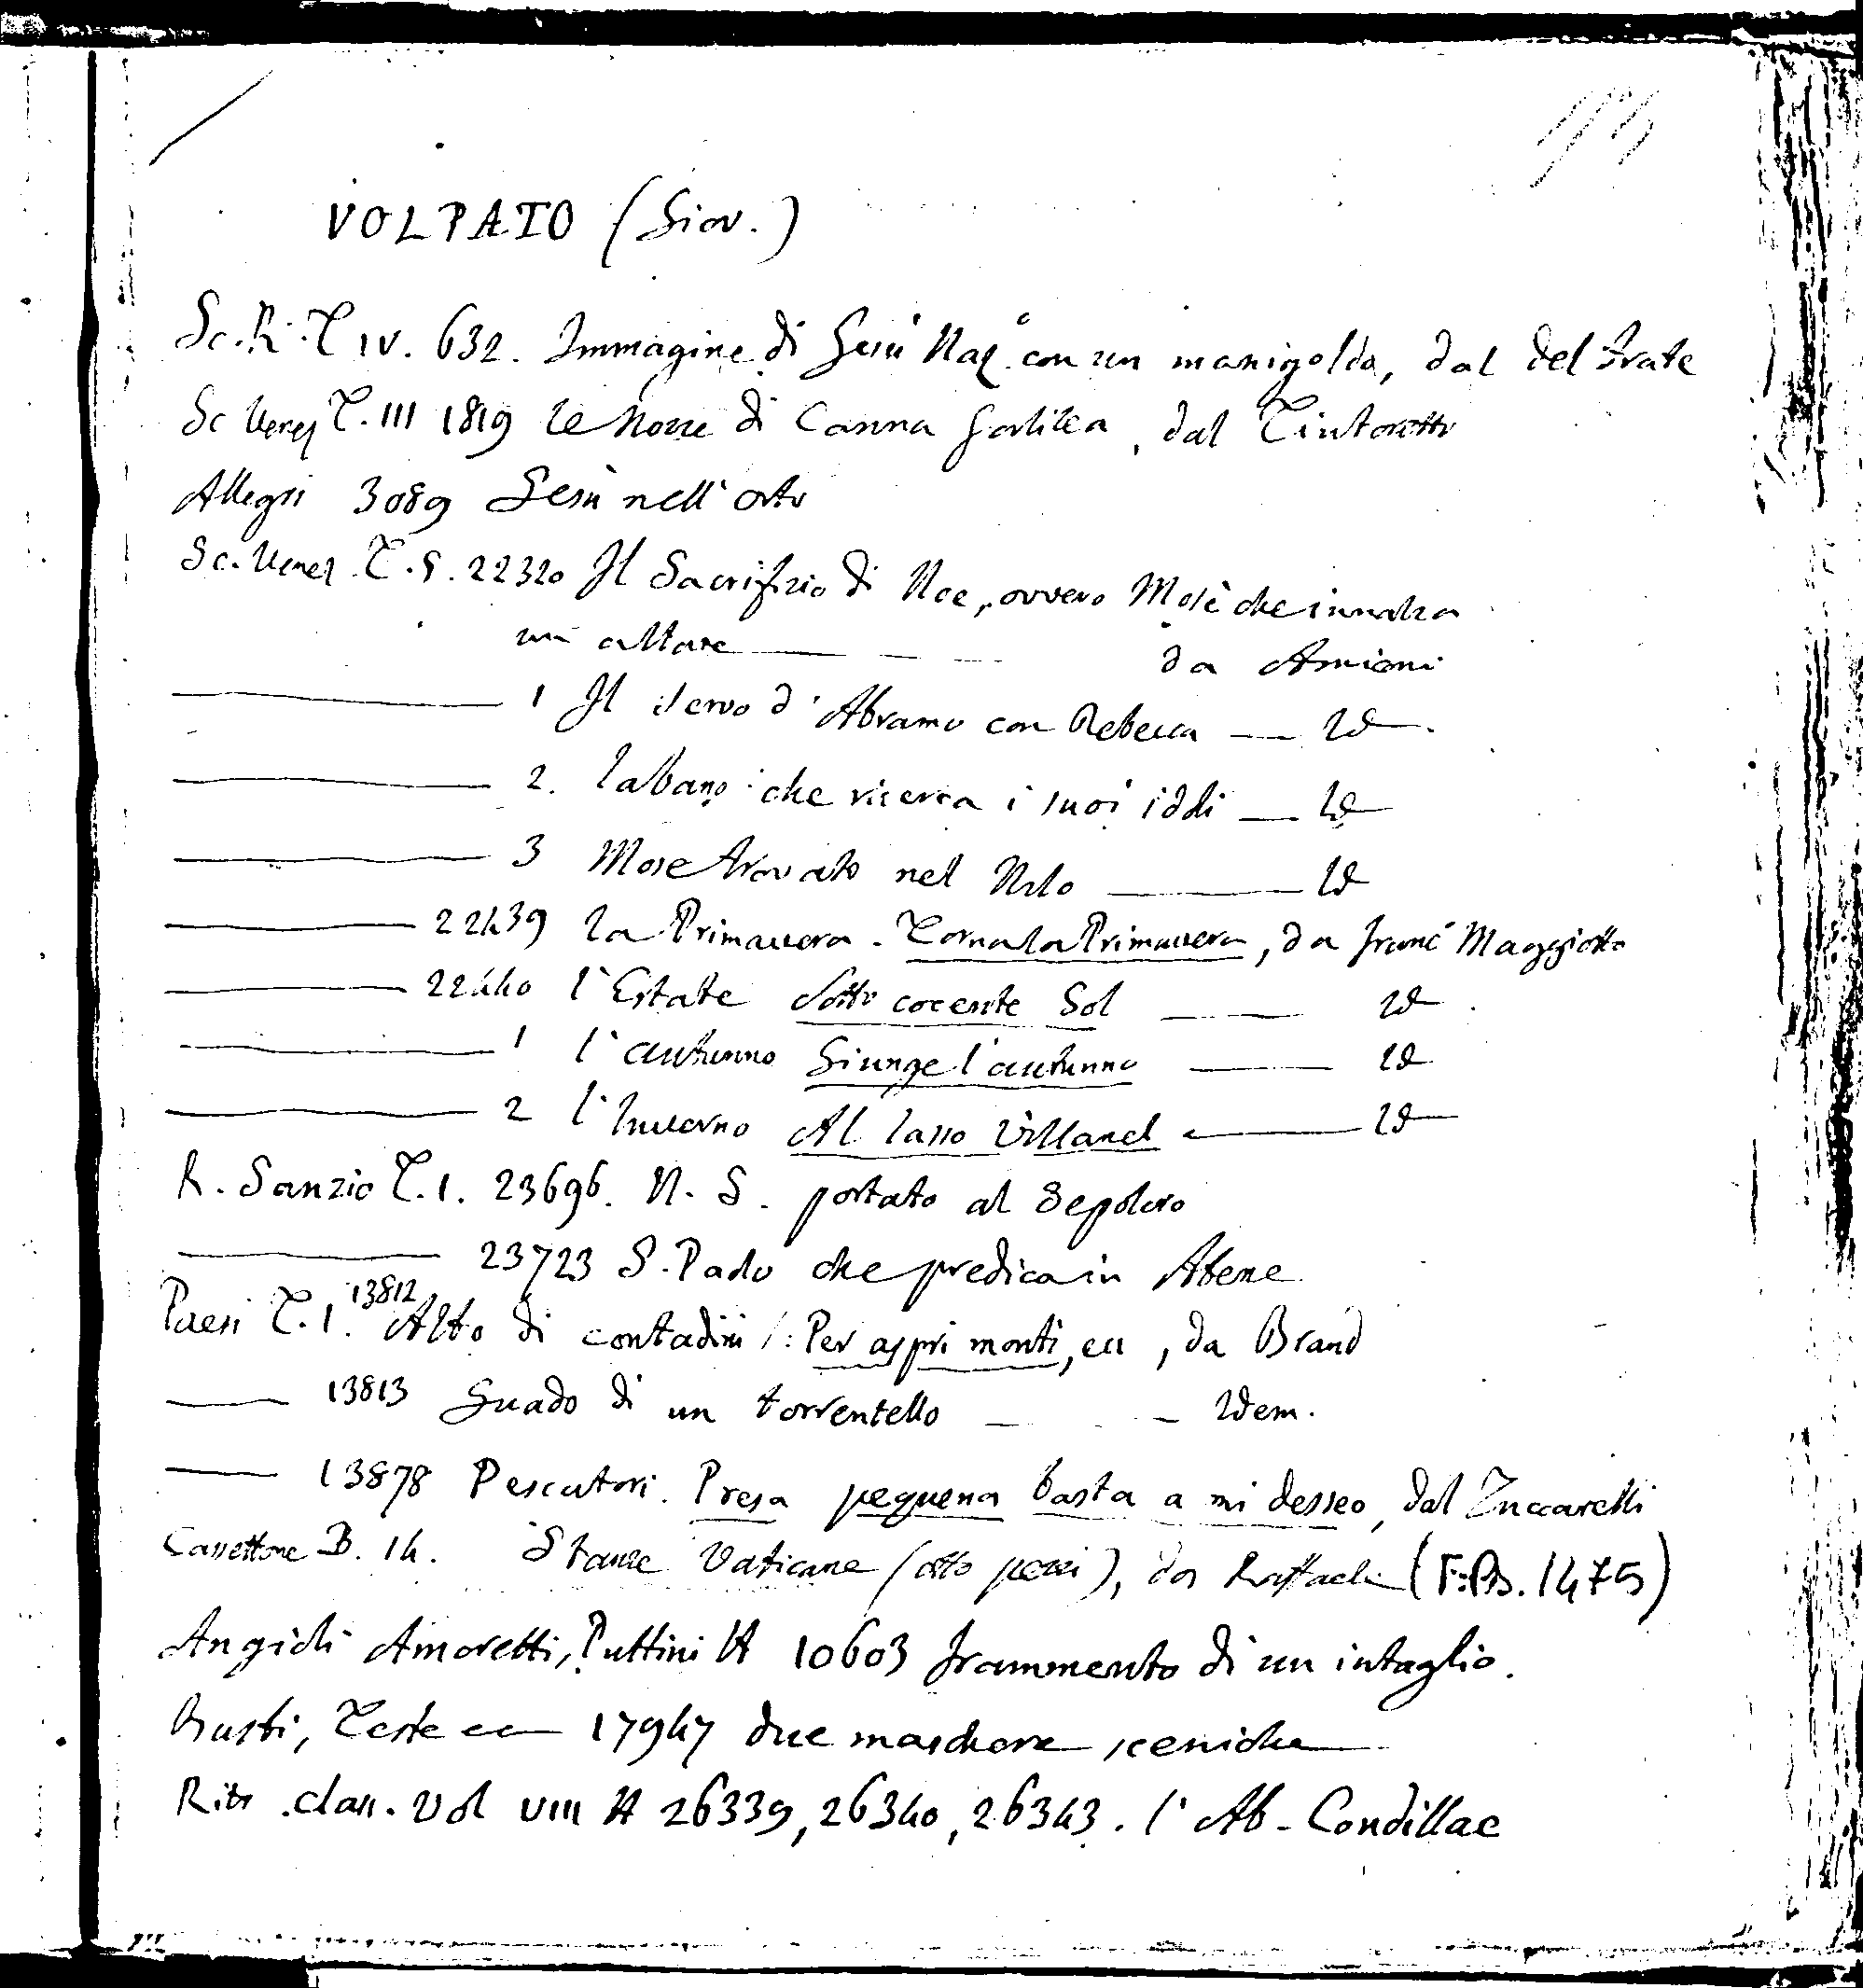 VOLPATO (Giov.)
Sc. R. T IV. 632. Immagine di Gesù Naz.º con un manigoldo, dal del Frate
Sc Venez T. III 1819 le Nozze di Canna Galilea, dal Tintoretto
Allegri 3089 Gesù nell' orto
Sc. Venez T. 5. 22320 Il Sacrifizio di Noe, ovvero Mosè che innalza
un altare — da Amiconi
— 1 Il servo d'Abramo con Rebecca — Id
— 2. Labano che ricerca i suoi iddi — Id
— 3 Mose trovato nel Nilo — Id
— 22439 La Primavera. Torna la Primavera, da Franc Maggiotto
— 22440 l'Estate Sotto cocente Sol — Id
— 1 l'autunno Giunge l'autunno — Id
— 2 l'Inverno Al lasso Villanel — Id
R. Sanzio T. 1. 23696. N. S. portato al Sepolcro
— 23723 S. Paolo che predica in Atene
Paesi T. 1. 13812 Alto di contadini /: Per aspri monti, ecc, da Brand
— 13813 Guado di un torrentello — Idem.
— 13878 Pescatori. Presa pequena basta a mi desseo, dal Zuccarelli
Cassettone B. 14. Stanze Vaticane (otto pezzi), da Raffaele (F.B. 1475)
Angioli Amoretti, Puttini 10603 frammento di un intaglio.
Busti, Teste ec 17947 due maschere sceniche
Ritr. clas. Vol VIII 26339, 26340, 26343. l'Ab. Condillac